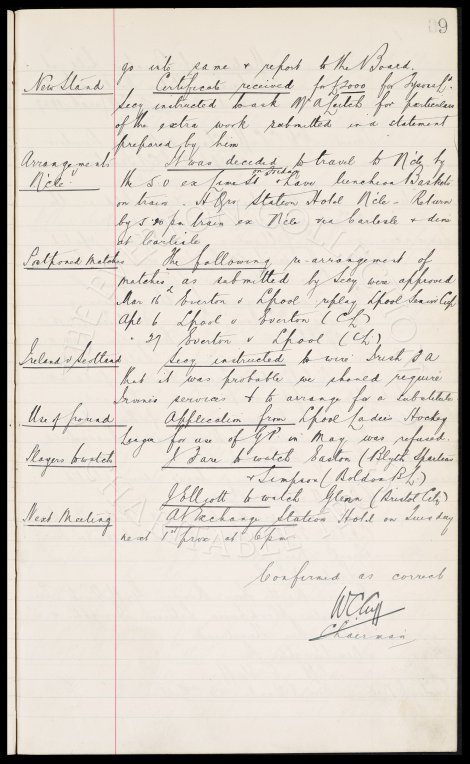 89
go into same & report to the Board.
New Stand Certificate received for £2000 for
Secy instructed to ask Mr A Leitch for particulars
of the extra work submitted in a statement
prepared by him
Arrangements It was decided to travel to N'cle by
N'cle. the 5.0 ex Lime St on Friday & have luncheon Baskets
on train. H Qrs Station Hotel N'cle - Return
by 5.20 pm train ex N'cle via Carlisle & dine
at Carlisle
Postponed Matches The following re-arrangement of
matches as submitted by Secy were approved
Mar 16 Everton v Lpool replay Lpool Senior Cup
Apl 6 Lpool v Everton (CL)
" 27 Everton v Lpool (CL)
Ireland v Scotland Secy instructed to wire Irish F A
that it was probable we should require
services & to arrange for a substitute
Use of ground Application from Lpool Ladies Hockey
League for use of GP in May was refused.
Players to watch J Fare to watch Easton (Blyth Spartans
& Simpson (Boldon
J Elliott to watch Glenn (Bristol City)
Next Meeting At Exchange Station Hotel on Tuesday
next 1st prox at 6 pm
Confirmed as correct
W C Cuff
Chairman